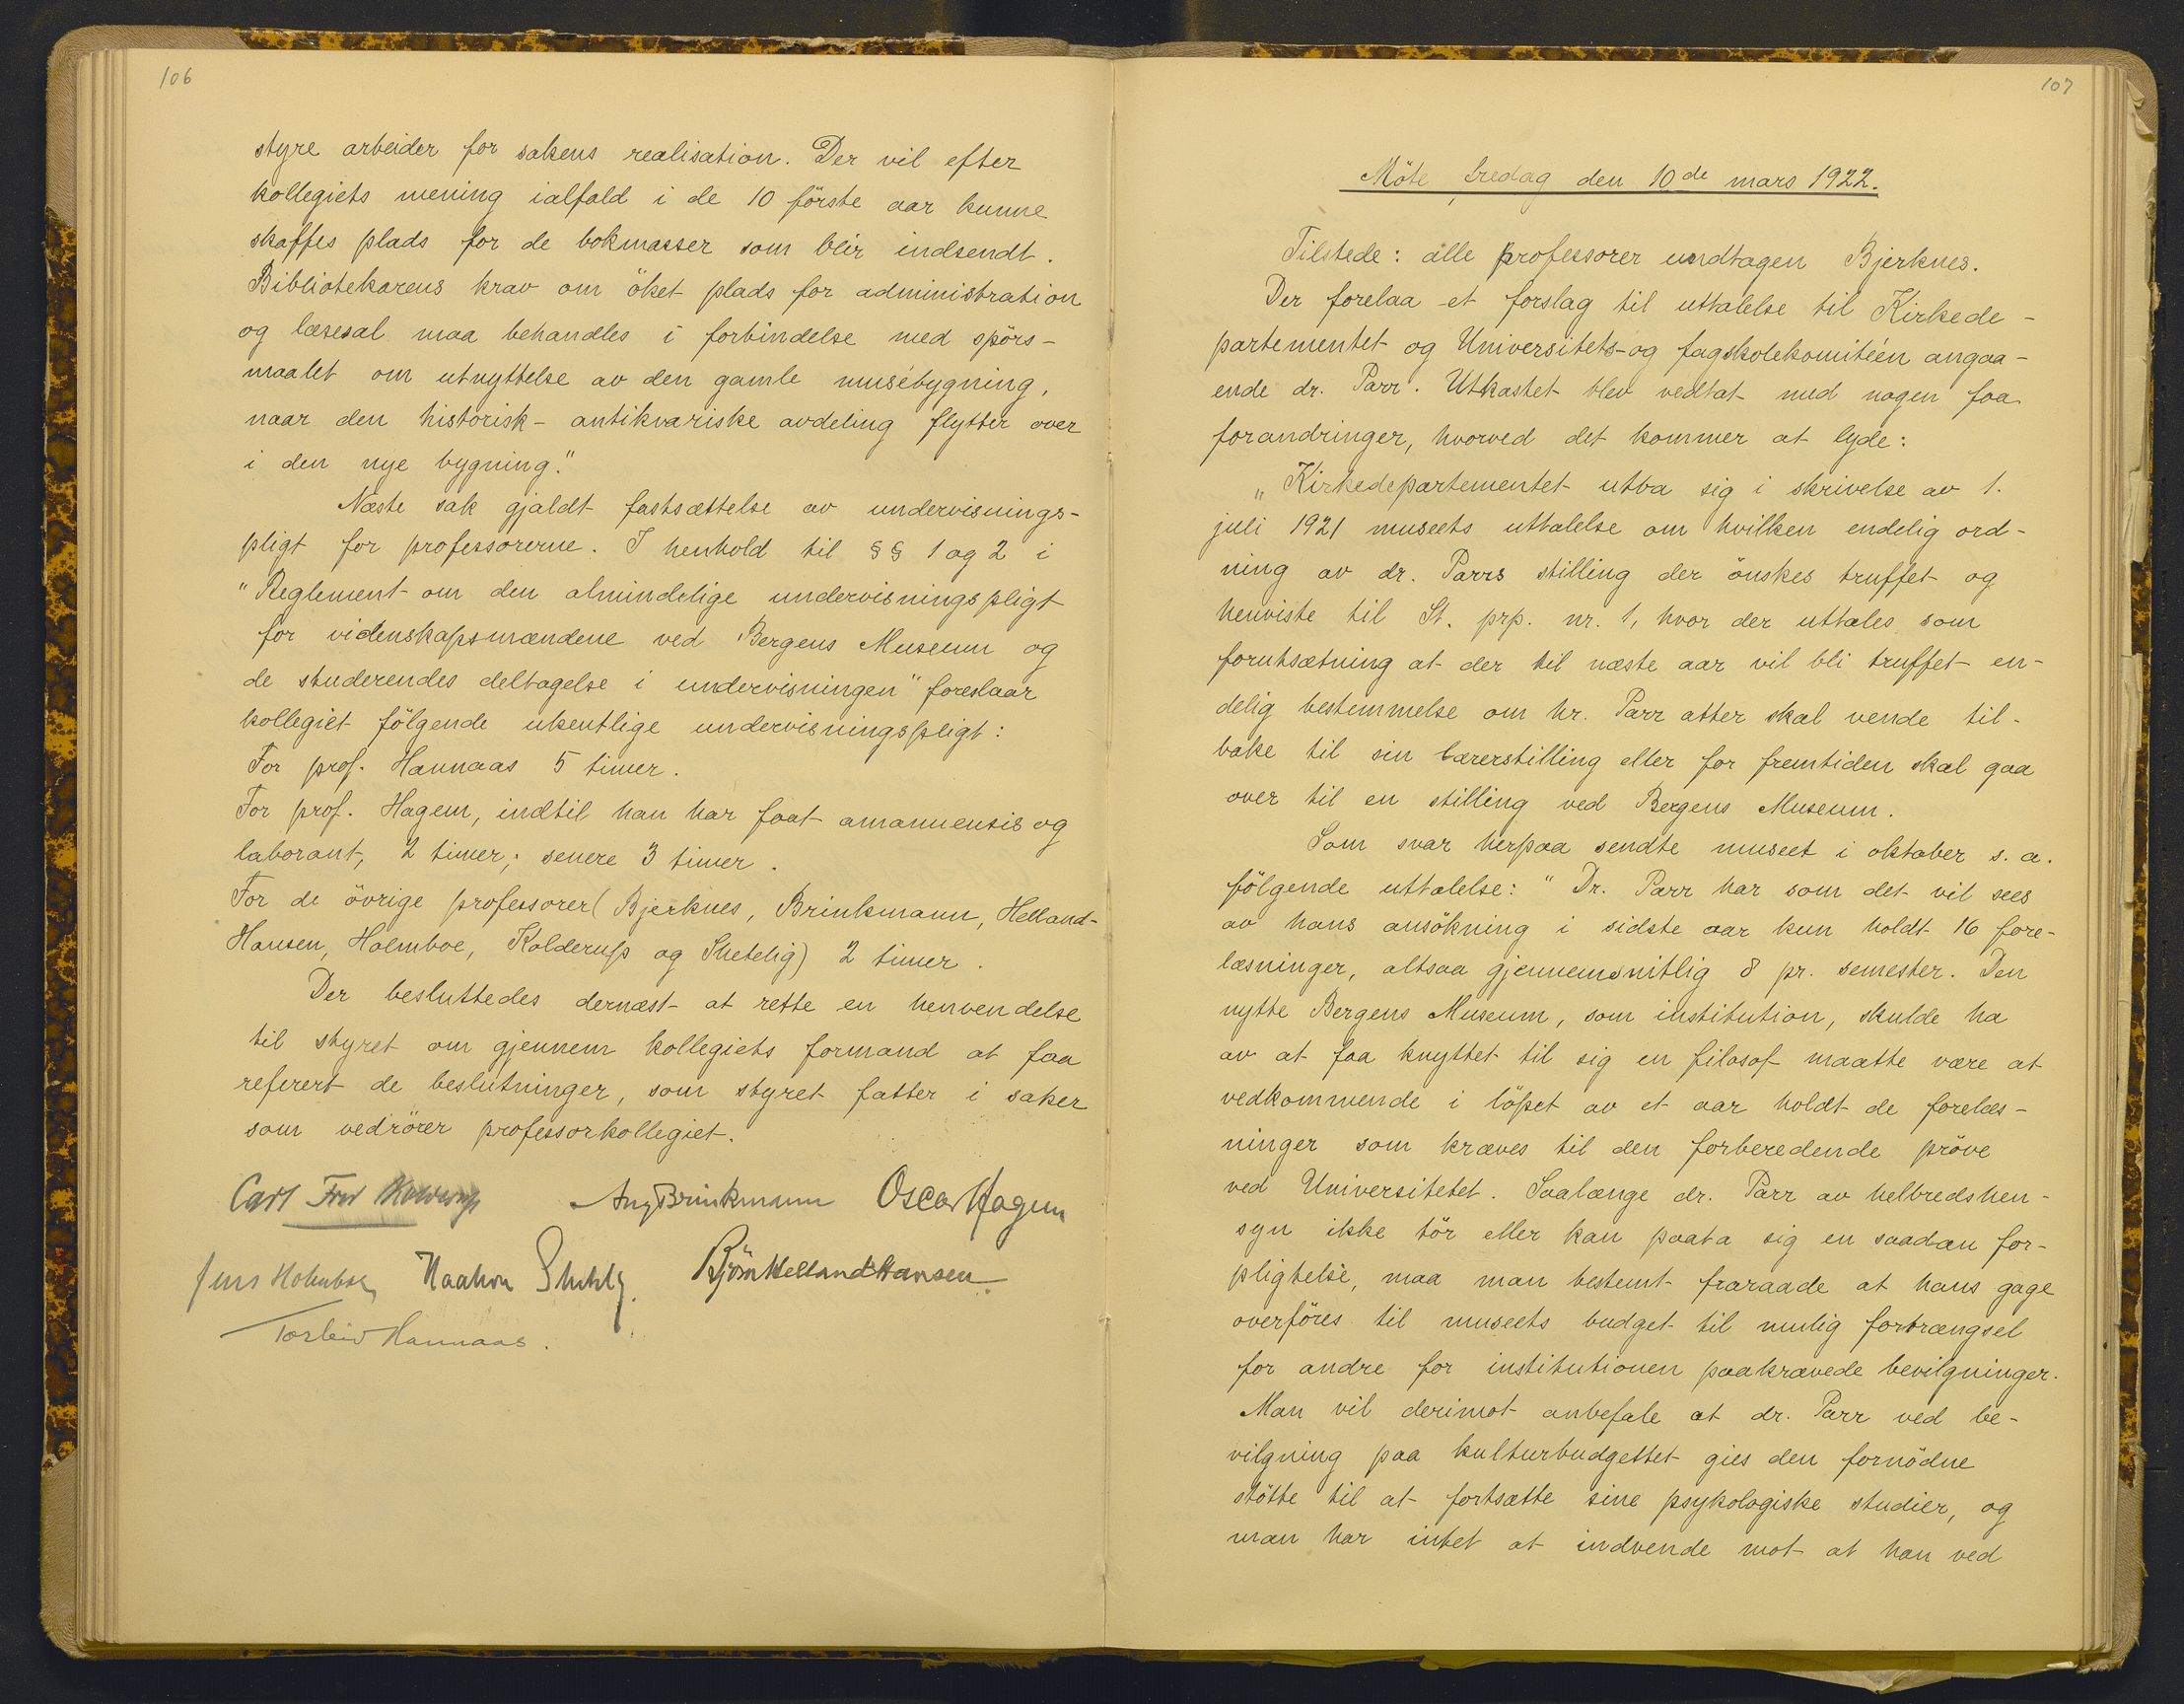 106
styre arbeider for sakens realisation. Der vil efter
kollegiets mening ialfald i de 10 förste aar kunne
skaffes plads for de bokmasser som blir indsendt.
Bibliotekarens krav om öket plads for administration
og læsesal maa behandles i forbindelse med spörs-
maalet om utnyttelse av den gamle musébygning,
naar den historisk-antikvariske avdeling flytter over
i den nye bygning."
Næste sak gjaldt fastsættelse av undervisnings-
pligt for professorerne. I henhold til §§ 1 og 2 i
"Reglement om den almindelige undervisningspligt
for videnskapsmændene ved Bergens Museum og
de studerendes deltagelse i undervisningen" foreslaar
kollegiet fölgende ukentlige undervisningspligt:
For prof. Hannaas 5 timer.
For prof. Hagem, indtil han har faat amanuensis og
laborant, 2 timer; senere 3 timer.
For de övrige professorer (Bjerknes, Brinkmann, Helland-
Hansen, Holmboe, Kolderup og Shetelig) 2 timer.
Der besluttedes dernæst at rette en henvendelse
til styret om gjennem kollegiets formand at faa
referert de beslutninger, som styret fatter i saker
som vedrörer professorkollegiet.
Carl Fred Kolderup Aug Brinkmann Oscar Hagem
Jens Holmboe Haakon Shetelig. Björn Helland Hansen
Torleiv Hannaas.
107
Möte fredag den 10de mars 1922.
Tilstede: alle professorer undtagen Bjerknes.
Der forelaa et forslag til uttalelse til Kirkede-
partementet og Universitets- og fagskolekomitéen angaa-
ende dr. Parr. Utkastet blev vedtat med nogen faa
forandringer, hvorved det kommer at lyde:
„Kirkedepartementet utba sig i skrivelse av 1.
juli 1921 museets uttalelse om hvilken endelig ord-
ning av dr. Parrs stilling der önskes truffet og
henviste til St. prp. nr. 1, hvor der uttales som
forutsætning at der til næste aar vil bli truffet en-
delig bestemmelse om hr. Parr atter skal vende til-
bake til sin lærerstilling eller for fremtiden skal gaa
over til en stilling ved Bergens Museum.
Som svar herpaa sendte museet i oktober s.a.
fölgende uttalelse: "Dr. Parr har som det vil sees
av hans ansökning i sidste aar kun holdt 16 fore-
læsninger, altsaa gjennemsnitlig 8 pr. semester. Den
nytte Bergens Museum, som institution, skulde ha
av at faa knyttet til sig en filosof maatte være at
vedkommende i löpet av et aar holdt de forelæs-
ninger som kræves til den forberedende pröve
ved Universitetet. Saalænge dr. Parr av helbredshen-
syn ikke tör eller kan paata sig en saadan for-
pligtelse, maa man bestemt fraraade at hans gage
overföres til museets budget til mulig fortrængsel
for andre for institutionen paakrævede bevilgninger.
Man vil derimot anbefale at dr. Parr ved be-
vilgning paa kulturbudgettet gies den fornödne
stötte til at fortsætte sine psykologiske studier, og
man har intet at indvende mot at han ved